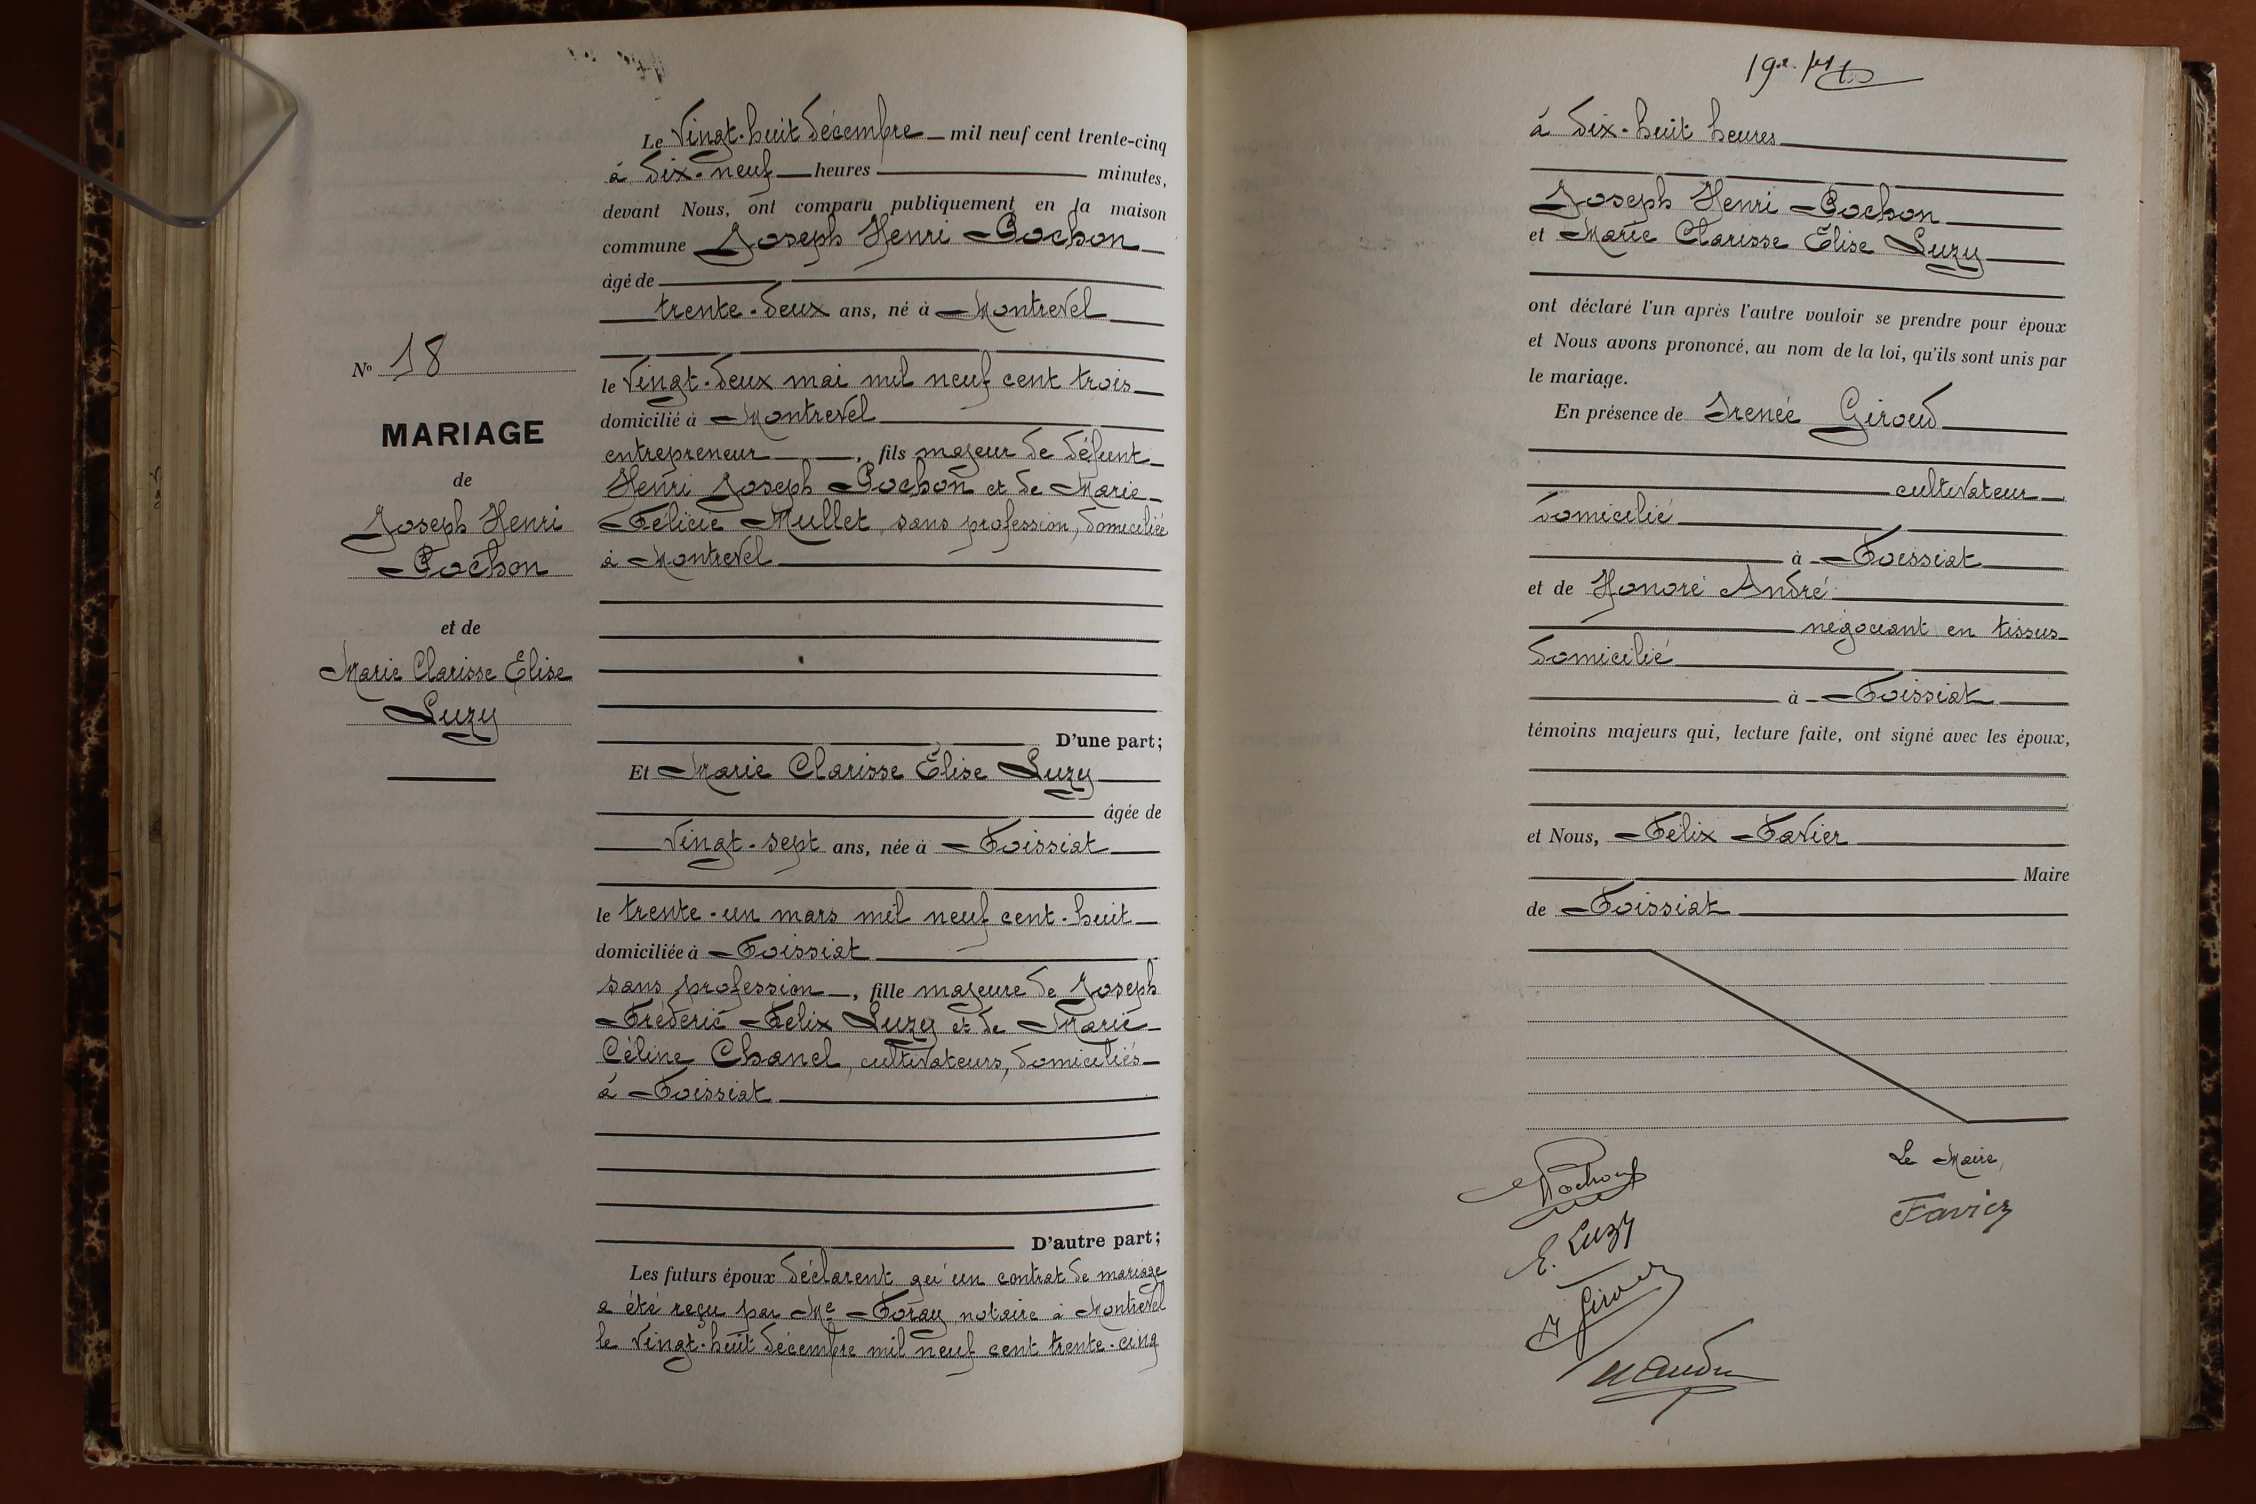 Le Vingt-huit décembre mil neuf cent trente-cinq
à dix-neuf heures minutes,
devant Nous, ont comparu publiquement en la maison
commune Joseph Henri Pochon
âgé de
trente-deux ans, né à Montrevel
le vingt-deux mai mil neuf cent trois
domicilié à Montrevel
entrepreneur, fils majeur de défunt
Henri Joseph Pochon et de Marie
Félicie Mullet, sans profession, domiciliée
à Montrevel
D'une part;
Et Marie Clarisse Élise Luzy
âgée de
vingt-sept ans, née à Foissiat
le trente-un mars mil neuf cent-huit
domiciliée à Foissiat
sans profession, fille majeure de Joseph
Fréderic Félix Luzy et de Marie
Céline Chanel, cultivateurs, domiciliés
à Foissiat
D'autre part;
Les futurs époux déclarent qu'un contrat de mariage
a été reçu par Me Foray notaire à Montrevel
le vingt-huit décembre mil neuf cent trente-cinq
No 18
MARIAGE
de
Joseph Henri
Pochon
et de
Marie Clarisse Elise
Luzy
19e
à dix-huit heures
Joseph Henri Pochon
et Marie Clarisse Élise Luzy
ont déclaré l'un après l'autre vouloir se prendre pour époux
et Nous avons prononcé, au nom de la loi, qu'ils sont unis par
le mariage.
En présence de Irenée Giroud
cultivateur
domicilié
à Foissiat
et de Honoré André
négociant en tissus
domicilié
à Foissiat
témoins majeurs qui, lecture faite, ont signé avec les époux,
et Nous, Félix Favier
Maire
de Foissiat
Le Maire,
Pochon
Favier
E. Luzy
I Giroud
H André